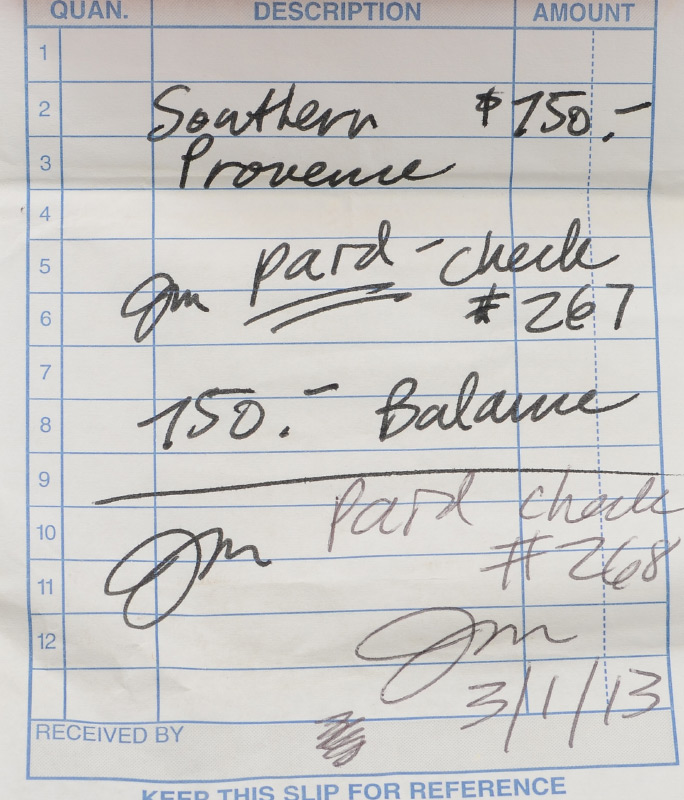 QUAN. DESCRIPTION AMOUNT
1
2 Southern $150.-
3 Provence
4
5 paid - check
6 Jm #267
7
8 150.- Balance
9
paid check
10 #268
11 Jm
12 Jm
3/1/13
RECEIVED BY
KEEP THIS SLIP FOR REFERENCE